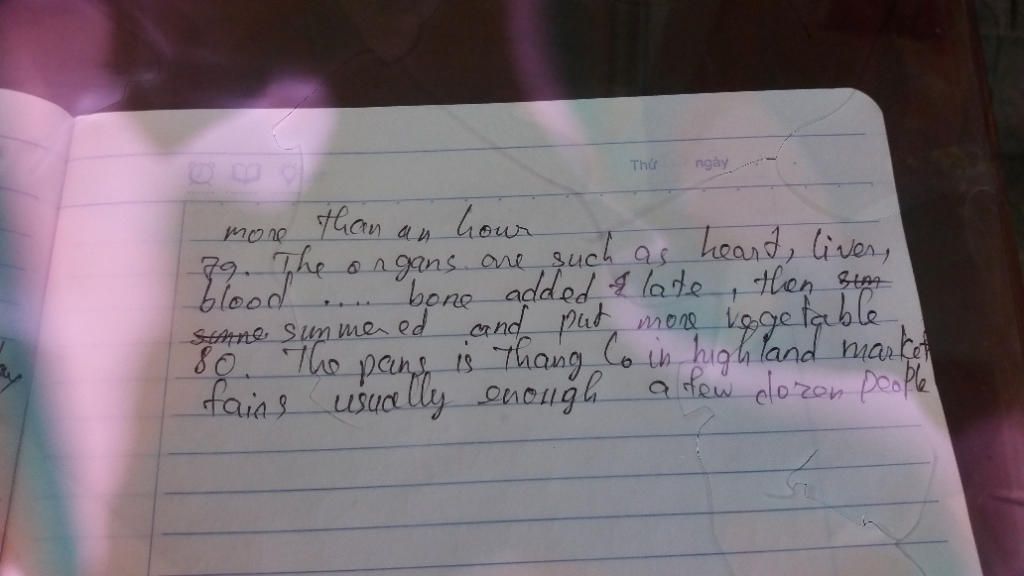 Thứ ngày
more than an hour
79. The organs are such as heart, liver,
blood .... bone added late, then
summered and put more vegetable
80. The pans is Thang Co in highland market
fairs usually enough a few dozen people